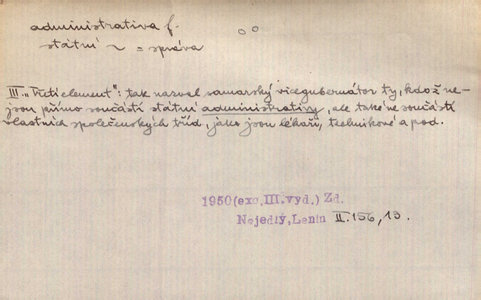 administrativa f.
státní ~ = správa
III „Třetí element“: tak nazval samarský vicegubernátor ty, kdož ne-
jsou přímo součástí státní administrativy, ale také ne součástí
vlastních společenských tříd, jako jsou lékaři, technikové a pod.
1950(exc.III.vyd.) Zd.
Nejedlý, Lenin II.156, 13.